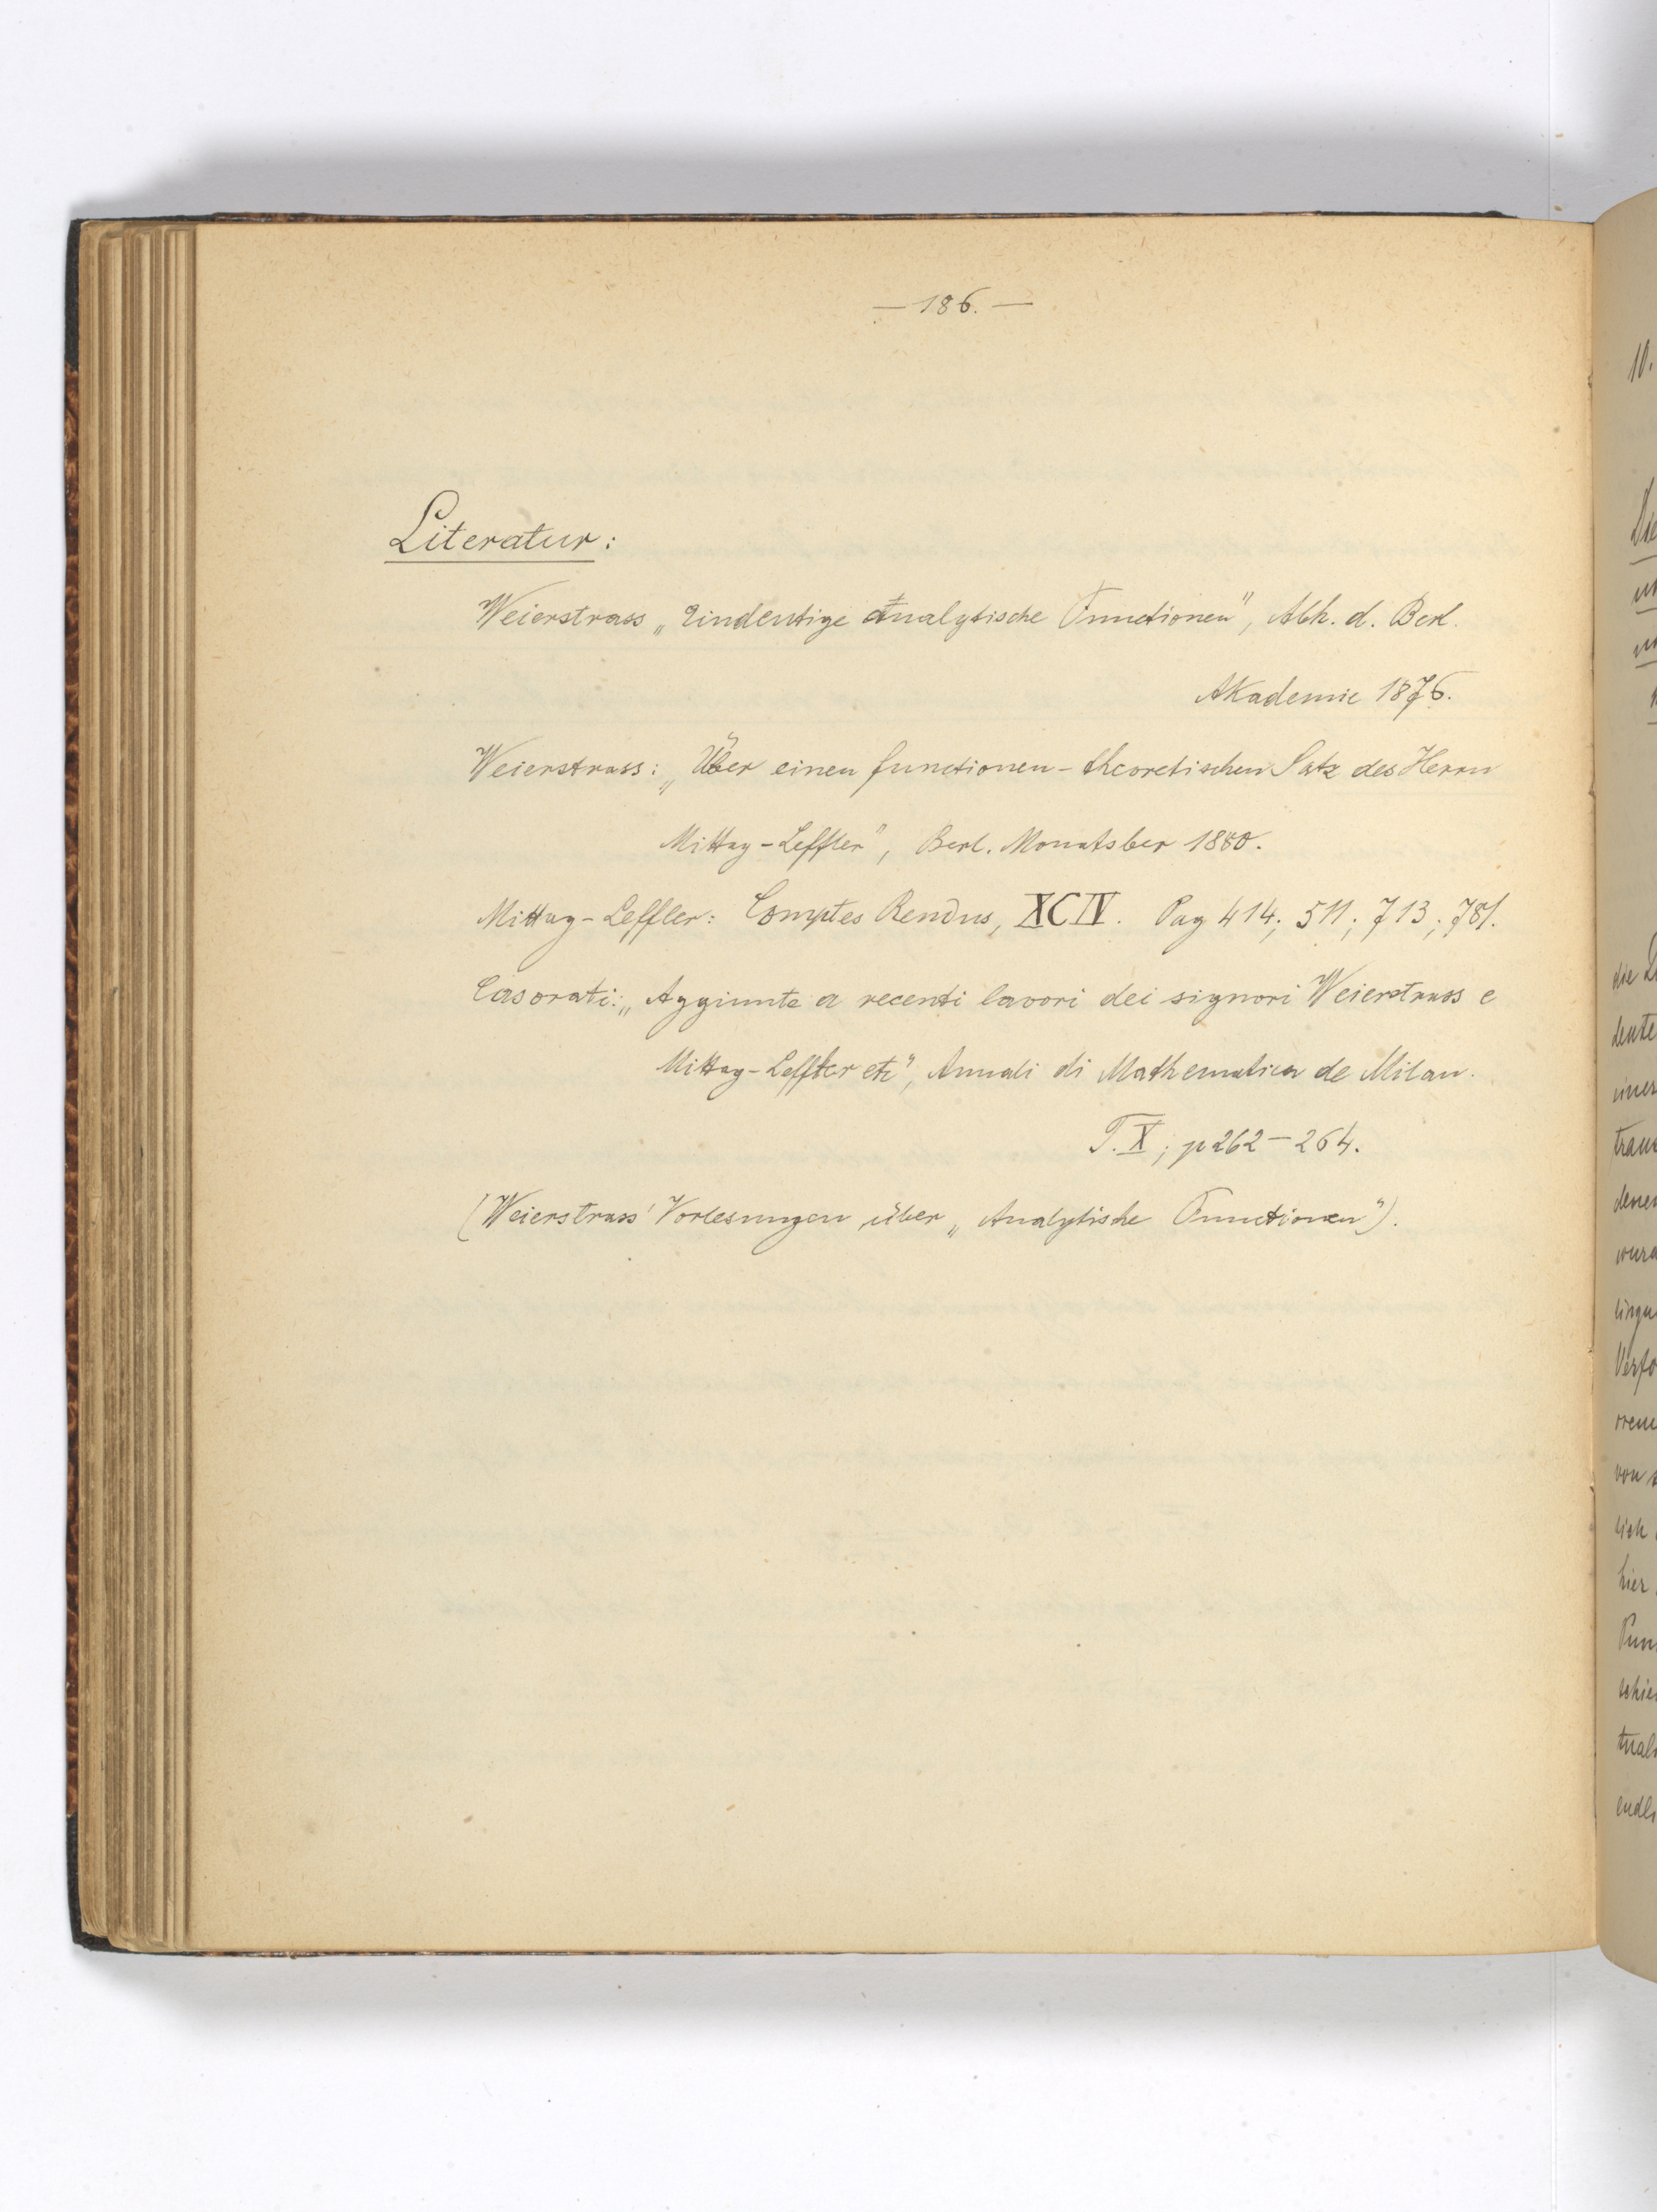 — 186. —
Literatur:
Weierstrass „Eindeutige analytische Functionen", Abh. d. Berl.
Akademie 1876.
Weierstrass: „Über einen functionen-theoretischen Satz des Herrn
Mittag-Leffler", Berl. Monatsber 1880.
Mittag-Leffler: Comptes Rendus, XCIV. Pag 414; 511; 713; 781.
Casorati: „Aggiunte a recenti lavori dei signori Weierstrass e
Mittag-Leffler etc", Annali di Mathematica de Milan.
T. X; p 262–264.
(Weierstrass' Vorlesungen über „Analytische Functionen").
10.